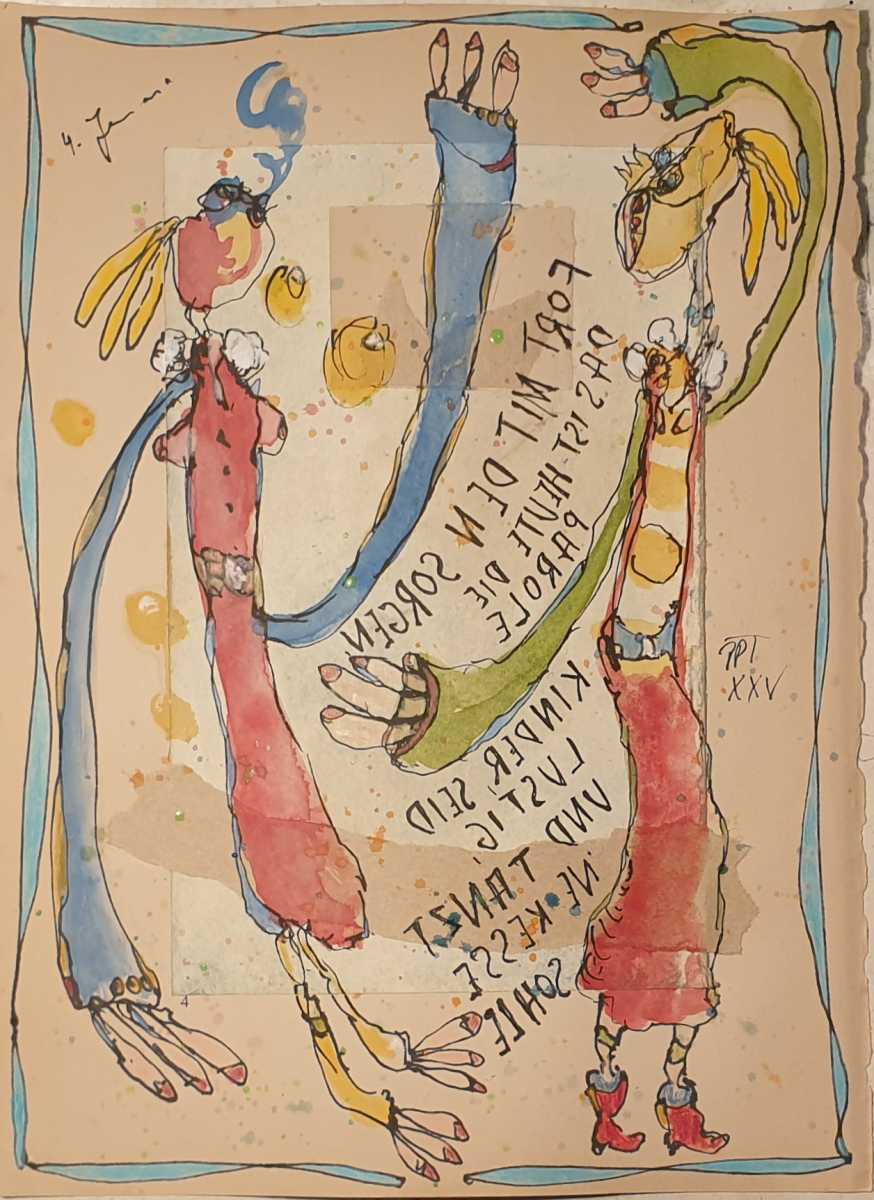 4.
FORT MIT DEN SORGEN,
DAS IST HEUTE DIE
PAROLE
KINDER, SEID
LUSTIG,
UND TANZT
'NE KESSE
SOHLE
PPT
XXV
4